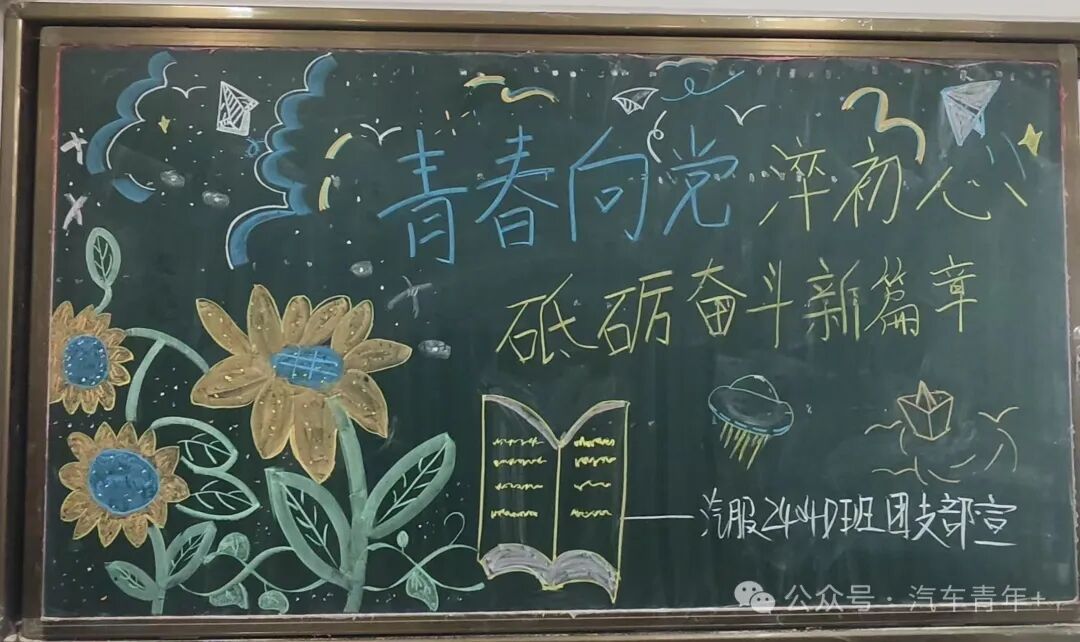 青春向党 淬初心
砥砺奋斗新篇章
汽服24441D班团支部宣
公众号·汽车青年+